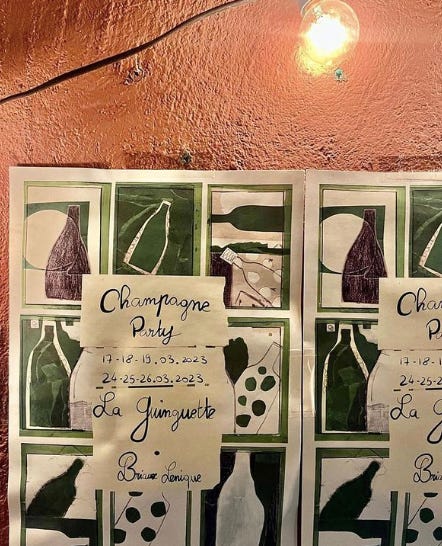 Champagne
Party
17-18-19.03.2023
24-25-26.03.2023
La Guinguette
Lenique
Cha
Pa
17-18-1
24-25-2
La G